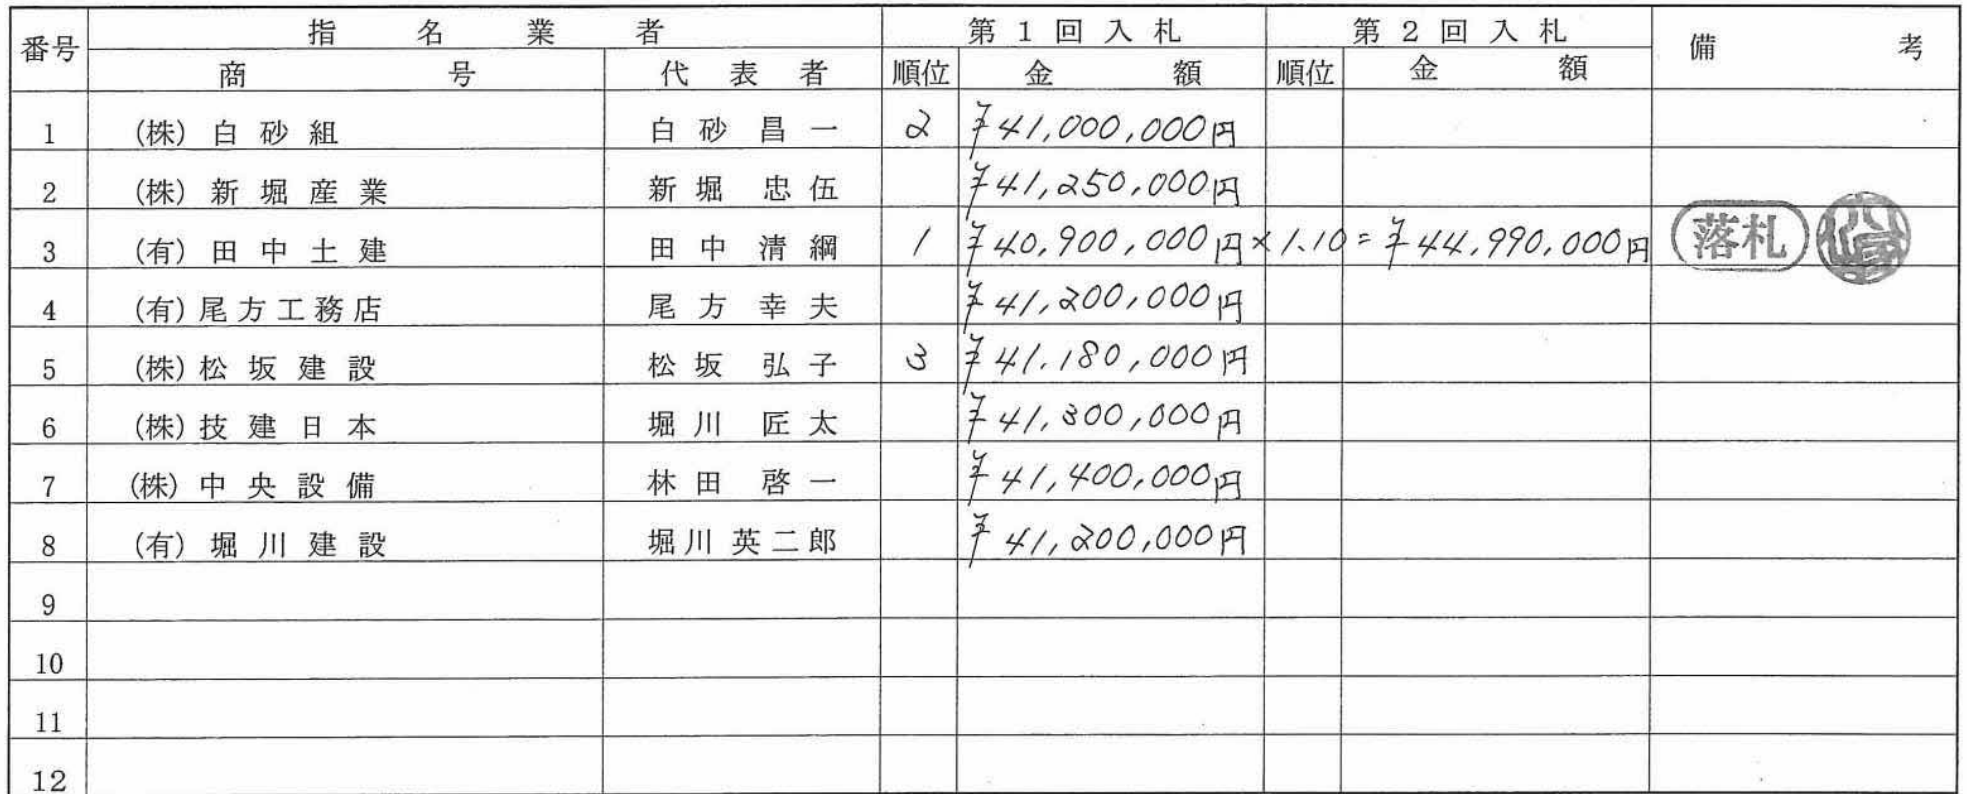 番号 指名業者 第1回入札 第2回入札 備考
商号 代表者 順位 金額 順位 金額
1 (株)白砂組 白砂昌一 2 ¥41,000,000円
2 (株)新堀産業 新堀忠伍 ¥41,250,000円
3 (有)田中土建 田中清綱 1 ¥40,900,000円×1.10=¥44,990,000円 落札
4 (有)尾方工務店 尾方幸夫 ¥41,200,000円
5 (株)松坂建設 松坂弘子 3 ¥41,180,000円
6 (株)技建日本 堀川匠太 ¥41,300,000円
7 (株)中央設備 林田啓一 ¥41,400,000円
8 (有)堀川建設 堀川英二郎 ¥41,200,000円
9
10
11
12